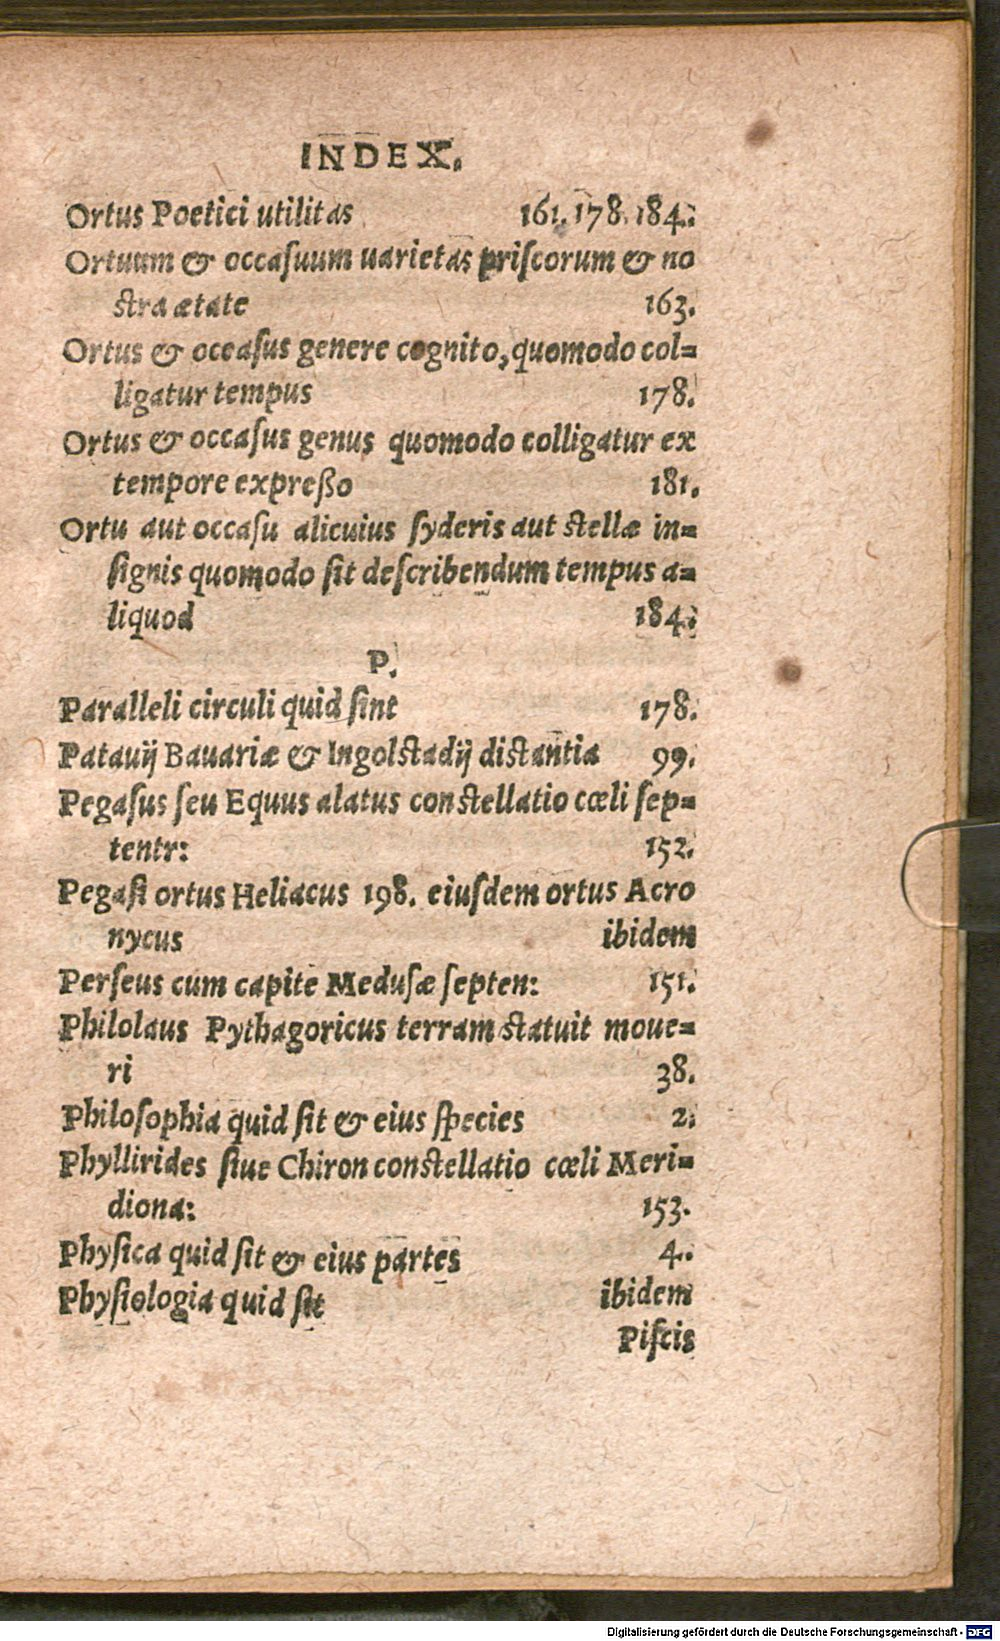 INDEX.
Ortus Poetici utilitas 161. 178. 184.
Ortuum & occaſuum uarietas priſcorum & no
ſtra ætate 163.
Ortus & occaſus genere cognito, quomodo col=
ligatur tempus 178.
Ortus & occaſus genus quomodo colligatur ex
tempore expreßo 181.
Ortu aut occaſu alicuius ſyderis aut ſtellæ in=
ſignis quomodo ſit deſcribendum tempus a=
liquod 184.
P.
Paralleli circuli quid ſint 178.
Patauij Bauariæ & Ingolſtadij diſtantia 99.
Pegaſus ſeu Equus alatus conſtellatio cœli ſep=
tentr: 152.
Pegaſi ortus Heliacus 198. eiuſdem ortus Acro
nycus ibidem
Perſeus cum capite Meduſæ ſepten: 151.
Philolaus Pythagoricus terram ſtatuit moue=
ri 38.
Philoſophia quid ſit & eius ſpecies 2.
Phyllirides ſiue Chiron conſtellatio cœli Meri=
diona: 153.
Phyſica quid ſit & eius partes 4.
Phyſiologia quid ſit ibidem
Piſcis
Digitalisierung gefördert durch die Deutsche Forschungsgemeinschaft - DFG